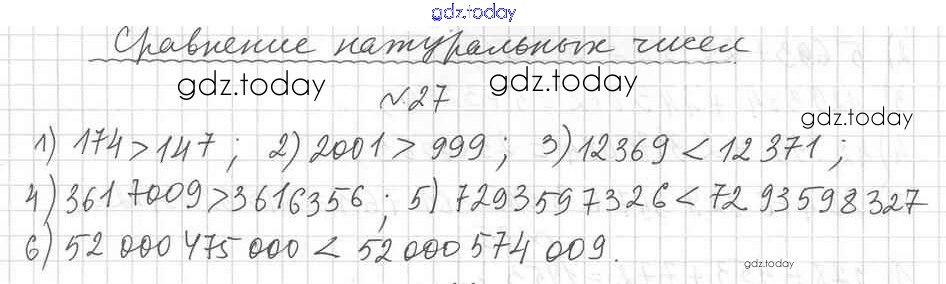 gdz.today
Сравнение натуральных чисел
gdz.today
№27
gdz.today
1) 174 > 147 ; 2) 2001 > 999 ; 3) 12369 < 12371 ;
4) 3617009 > 3616356 ; 5) 7293597326 < 7293598327
6) 52 000 475 000 < 52 000 574 009.
gdz.today